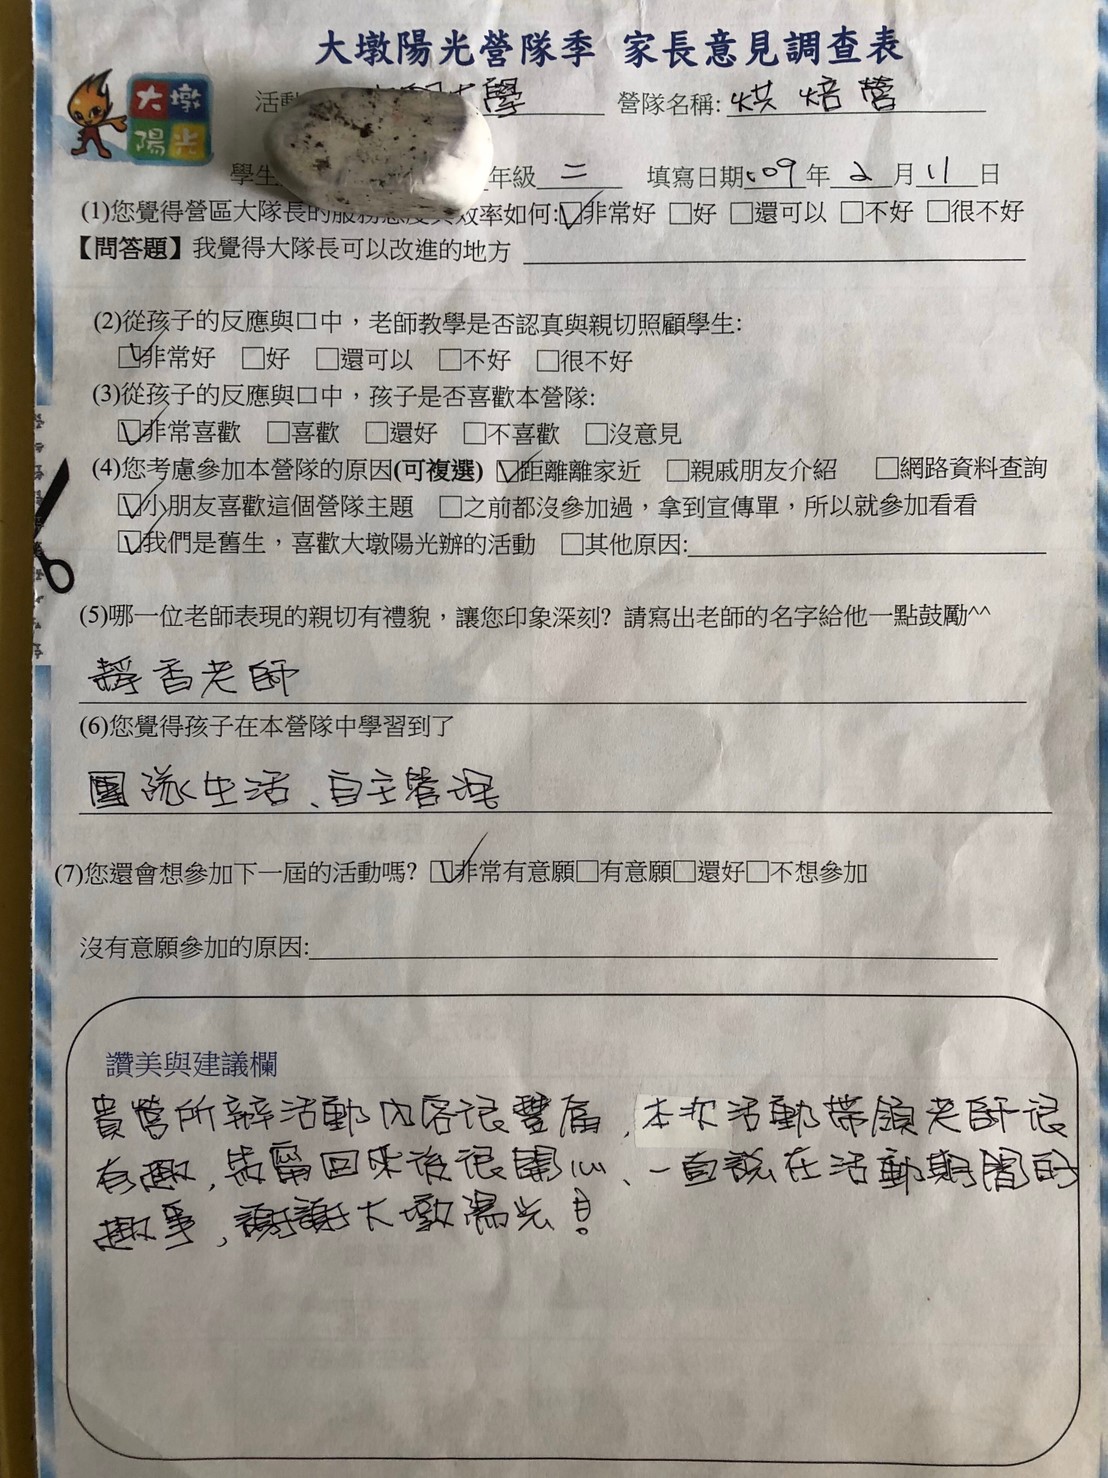 大墩陽光營隊季 家長意見調查表
大墩
陽光
活動 大學 營隊名稱: 烘焙營
學生 年級 二 填寫日期 109 年 2 月 11 日
(1)您覺得營區大隊長的服務態度與效率如何:☑非常好 □好 □還可以 □不好 □很不好
【問答題】我覺得大隊長可以改進的地方
(2)從孩子的反應與口中，老師教學是否認真與親切照顧學生:
☑非常好 □好 □還可以 □不好 □很不好
(3)從孩子的反應與口中，孩子是否喜歡本營隊:
☑非常喜歡 □喜歡 □還好 □不喜歡 □沒意見
(4)您考慮參加本營隊的原因(可複選) ☑距離離家近 □親戚朋友介紹 □網路資料查詢
☑小朋友喜歡這個營隊主題 □之前都沒參加過，拿到宣傳單，所以就參加看看
☑我們是舊生，喜歡大墩陽光辦的活動 □其他原因:
(5)哪一位老師表現的親切有禮貌，讓您印象深刻? 請寫出老師的名字給他一點鼓勵^^
靜香老師
(6)您覺得孩子在本營隊中學習到了
團隊生活、自主管理
(7)您還會想參加下一屆的活動嗎? ☑非常有意願□有意願□還好□不想參加
沒有意願參加的原因:
讚美與建議欄
貴營所辦活動內容很豐富，本次活動帶領老師很
有趣，回來後很開心、一直說在活動期間的
趣事，謝謝大墩陽光！